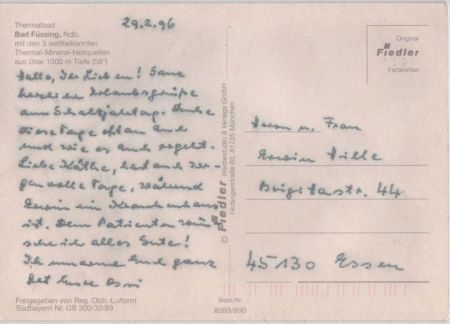 Thermalbad
Bad Füssing, Ndb.
mit den 3 weltbekannten
Thermal-Mineral-Heilquellen
aus über 1000 m Tiefe (56°)
29.2.96
Hallo, Ihr Lieben! Ganz
herzliche Urlaubsgrüße
am Schaltjahrtag. Denke
diese Tage oft an Euch
und wie es Euch ergeht.
Liebe Käthe, hast auch
volle Tage, während
Erwin im Krankenhaus
ist. Dem Patienten wün
sche ich alles Gute!
Ich umarme Euch ganz
Ossi
Freigegeben von Reg. Obb. Luftamt
Südbayern Nr. GS 300/32/89
© Fiedler Werbestudio & Verlags GmbH
81735 München
Original
Fiedler
Farbkarten
Herrn u. Frau
Erwin Hille
Brigittastr. 44
45130 Essen
Best.-Nr.
8389/890